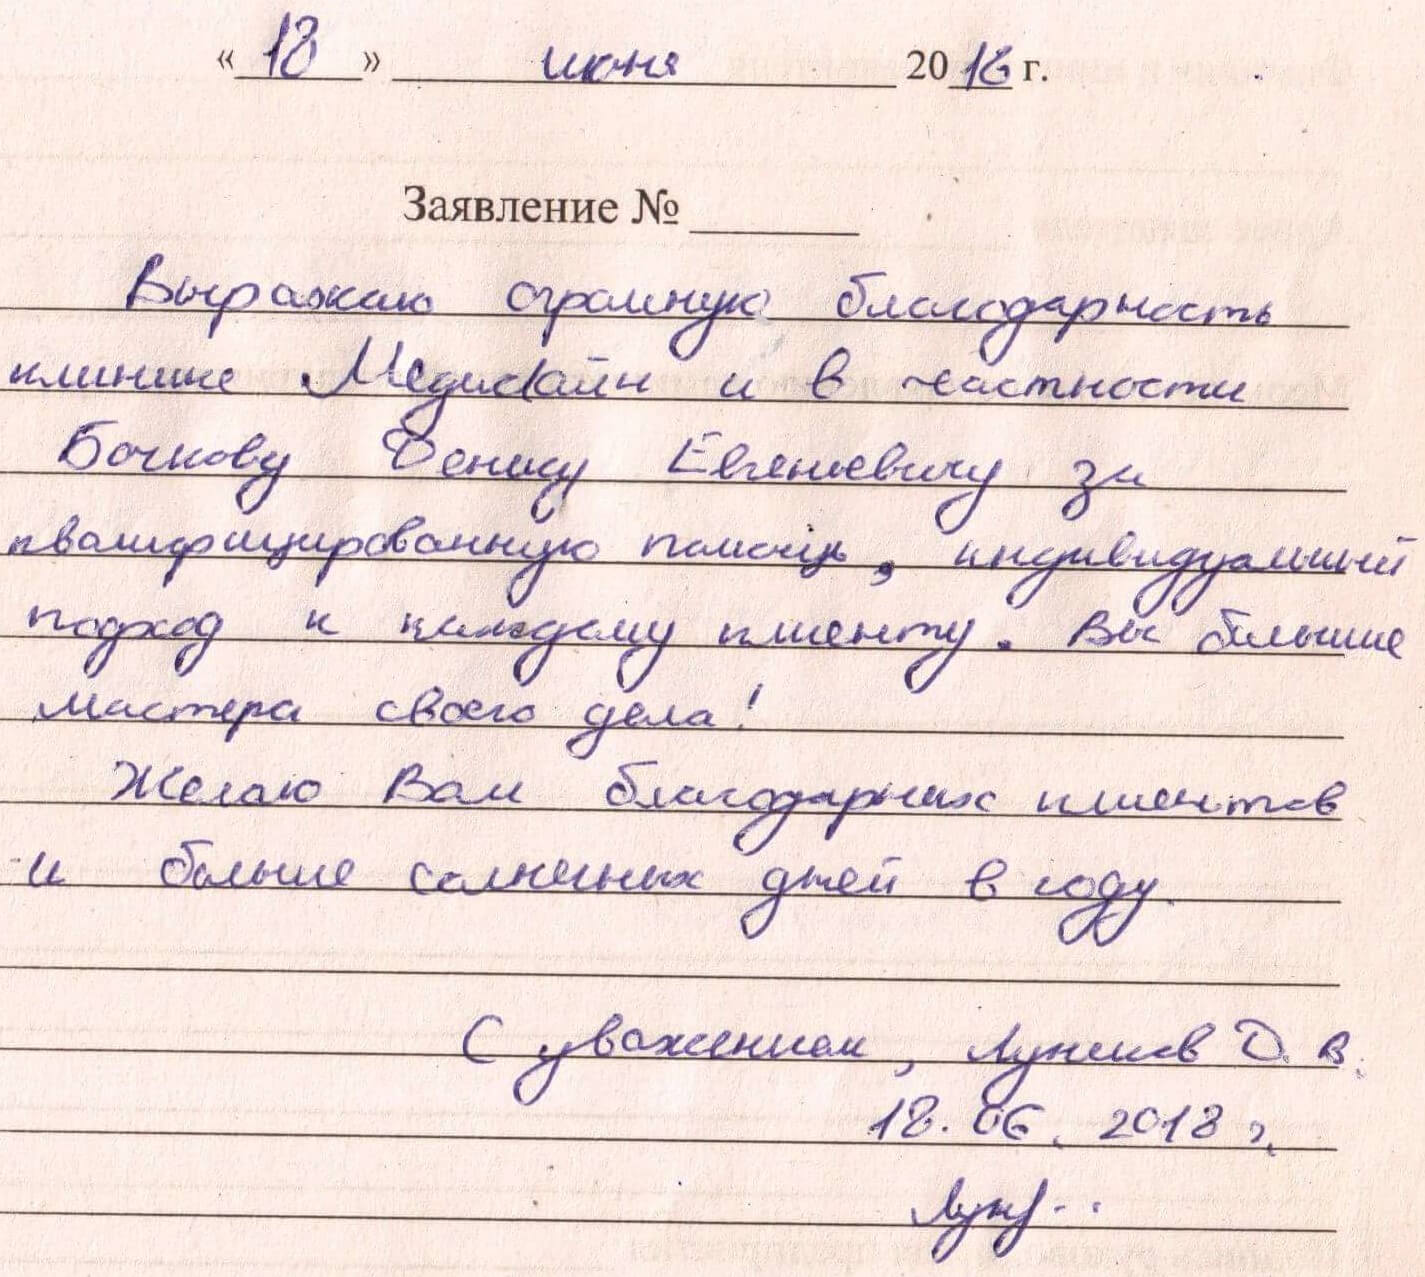 « 18 » июня 2016 г.
Заявление № ______
Выражаю огромную благодарность
клинике МедиЛайн и в частности
Бочкову Денису Евгеньевичу за
квалифицированную помощь, индивидуальный
подход к каждому клиенту. Вы большие
мастера своего дела!
Желаю Вам благодарных клиентов
и больше солнечных дней в году.
С уважением, Д. В.
18.06.2018 г.